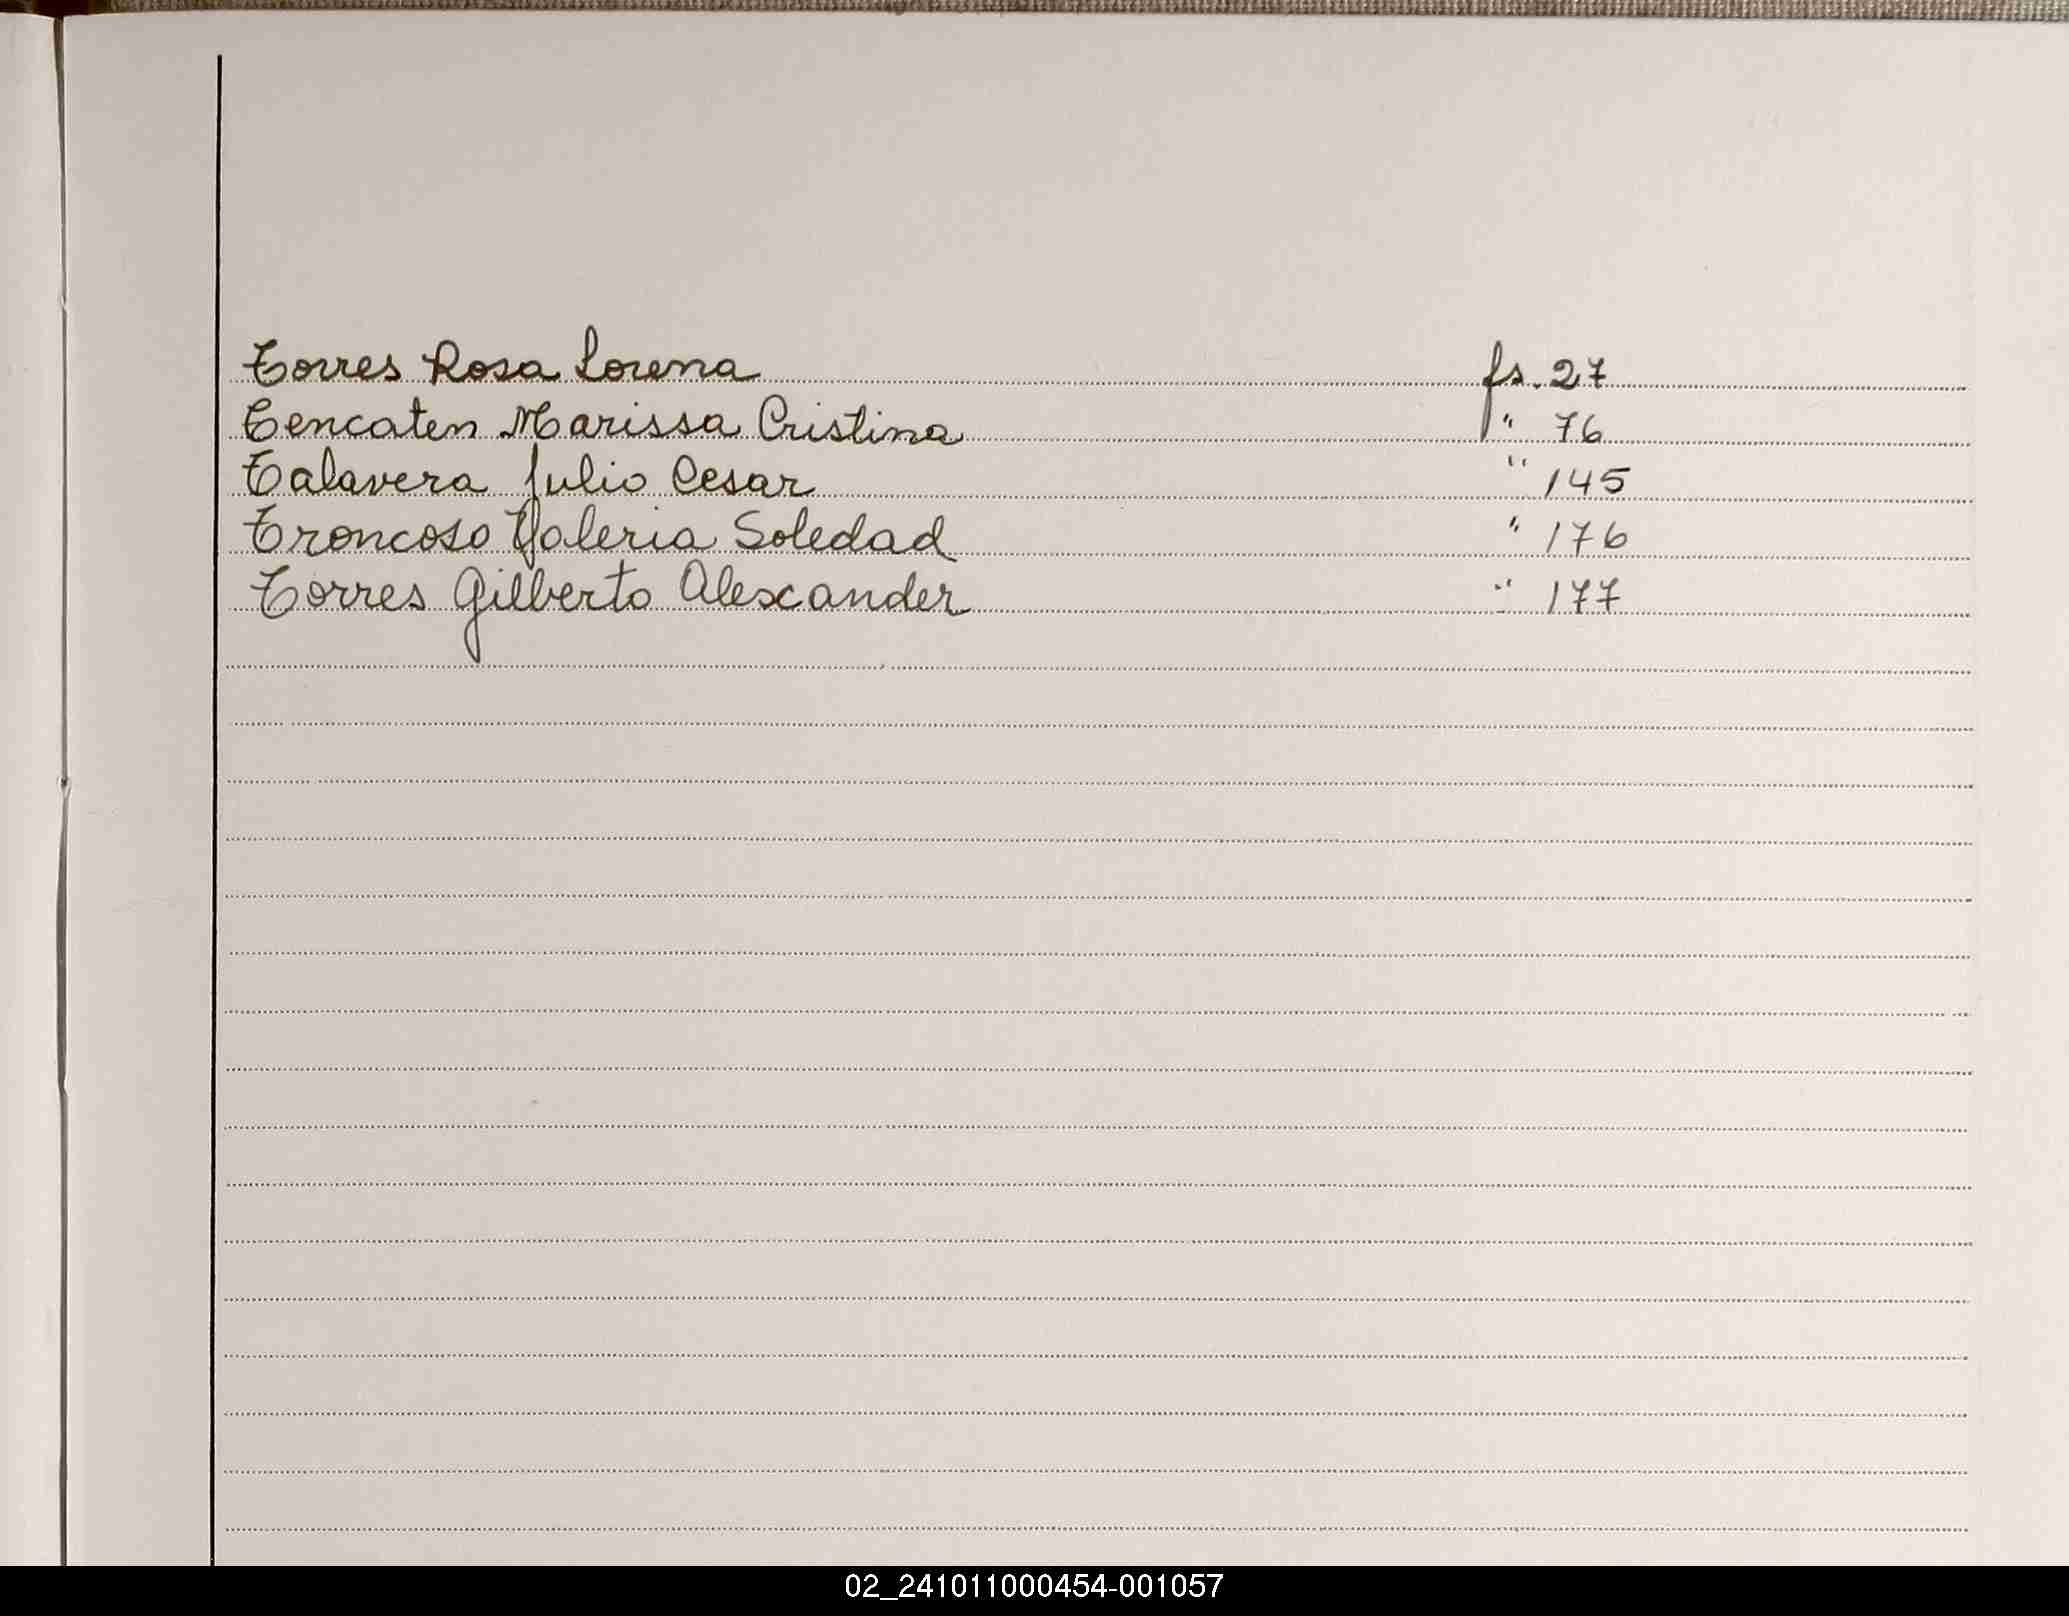 Torres Rosa Lorena fs. 27
Tencaten Marissa Cristina " 76
Talavera Julio Cesar " 145
Troncoso Valeria Soledad " 176
Torres Gilberto Alexander " 177
02_241011000454-001057